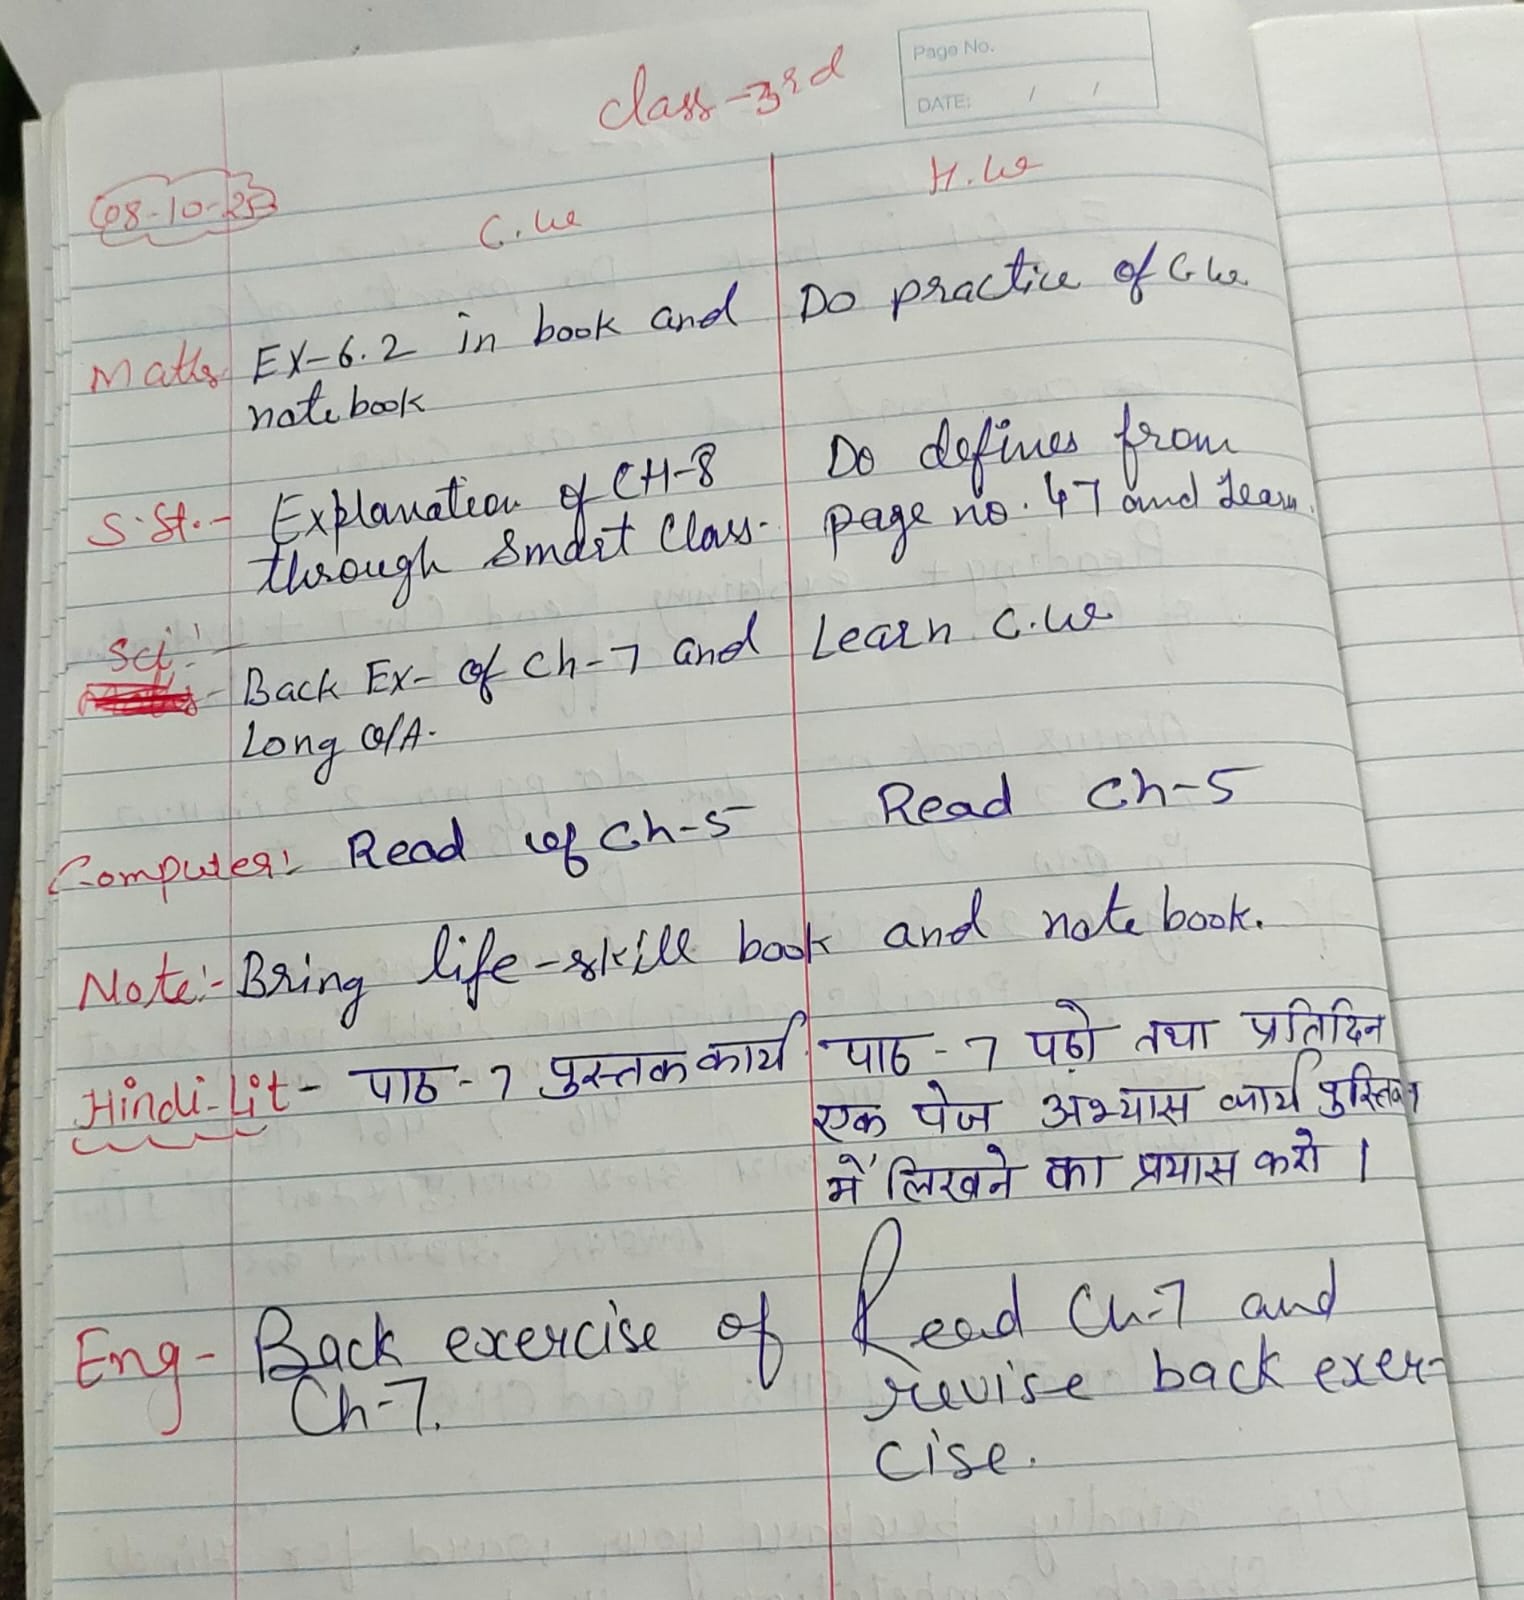 Page No.
DATE: / /
Class-3rd
08-10-25
C.W
H.W
Maths EX-6.2 in book and
notebook
Do practice of C.W
S.St.- Explanation of CH-8
through Smart Class.
Do defines from
page no. 47 and Learn.
Sci:-
Back Ex- of Ch-7 and
Long Q/A.
Learn C.W
Computer:- Read of Ch-5
Read Ch-5
Note:- Bring life-skill book and notebook.
Hindi-Lit- पाठ-7 पुस्तक कार्य
पाठ-7 पढ़ो तथा प्रतिदिन
एक पेज अभ्यास कार्य पुस्तिका
में लिखने का प्रयास करो ।
Eng- Back exercise of
Ch-7.
Read Ch-7 and
revise back exer-
cise.